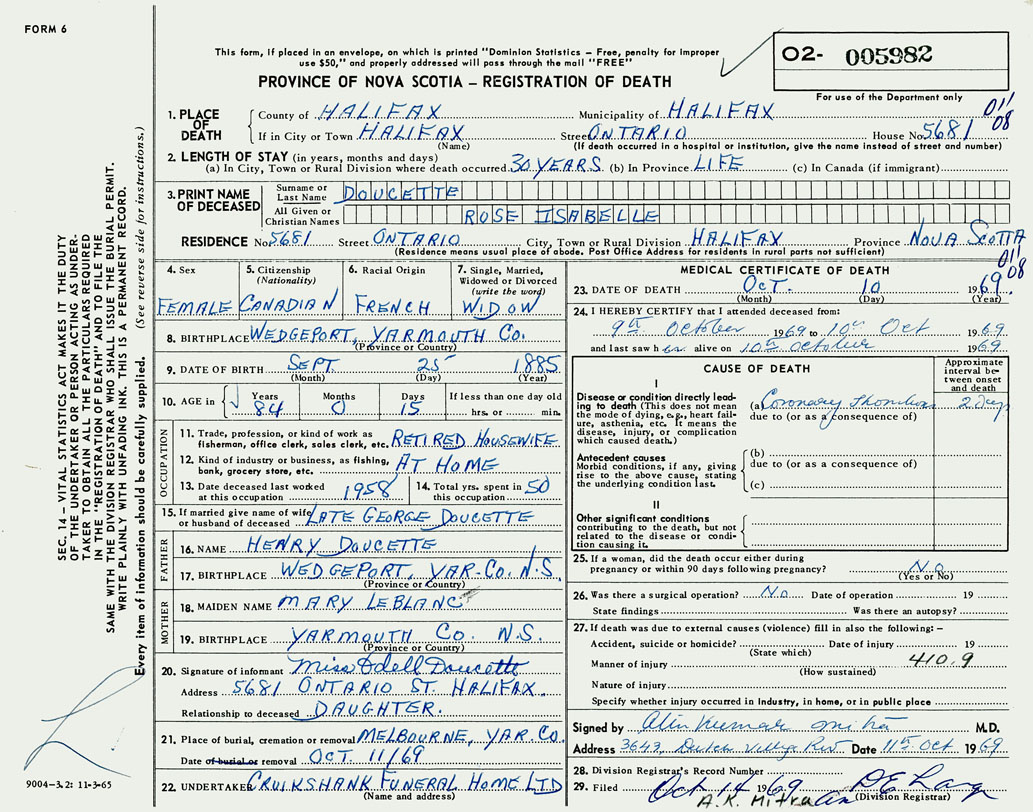 FORM 6
This form, if placed in an envelope, on which is printed "Dominion Statistics – Free, penalty for improper
use $50," and properly addressed will pass through the mail "FREE"
PROVINCE OF NOVA SCOTIA – REGISTRATION OF DEATH
02- 005982
For use of the Department only
011
08
1. PLACE OF DEATH
County of HALIFAX Municipality of HALIFAX
If in City or Town HALIFAX Street ONTARIO House No. 5681
(Name) (If death occurred in a hospital or institution, give the name instead of street and number)
2. LENGTH OF STAY (in years, months and days)
(a) In City, Town or Rural Division where death occurred. 30 YEARS (b) In Province LIFE (c) In Canada (if immigrant)
3. PRINT NAME OF DECEASED
Surname or Last Name DOUCETTE
All Given or Christian Names ROSE ISABELLE
RESIDENCE No. 5681 Street ONTARIO City, Town or Rural Division HALIFAX Province NOVA SCOTIA
(Residence means usual place of abode. Post Office Address for residents in rural parts not sufficient)
011
08
4. Sex
FEMALE
5. Citizenship
(Nationality)
CANADIAN
6. Racial Origin
FRENCH
7. Single, Married,
Widowed or Divorced
(write the word)
WIDOW
8. BIRTHPLACE WEDGEPORT, YARMOUTH Co.
(Province or Country)
9. DATE OF BIRTH SEPT. 25 1885
(Month) (Day) (Year)
10. AGE in
Years Months Days If less than one day old
84 0 15 hrs. or min.
OCCUPATION
11. Trade, profession, or kind of work as
fisherman, office clerk, sales clerk, etc. RETIRED HOUSEWIFE
12. Kind of industry or business, as fishing,
bank, grocery store, etc. AT HOME
13. Date deceased last worked
at this occupation 1958
14. Total yrs. spent in
this occupation 50
15. If married give name of wife
or husband of deceased LATE GEORGE DOUCETTE
FATHER
16. NAME HENRY DOUCETTE
17. BIRTHPLACE WEDGEPORT, YAR. Co. N.S.
(Province or Country)
MOTHER
18. MAIDEN NAME MARY LEBLANC
19. BIRTHPLACE YARMOUTH Co. N.S.
(Province or Country)
20. Signature of informant Miss Odell Doucette
Address 5681 ONTARIO ST. HALIFAX.
Relationship to deceased DAUGHTER.
21. Place of burial, cremation or removal MELBOURNE, YAR. Co.
Date of burial or removal OCT. 11/69
22. UNDERTAKER CRUIKSHANK FUNERAL HOME LTD
(Name and address)
MEDICAL CERTIFICATE OF DEATH
23. DATE OF DEATH OCT. 10 1969.
(Month) (Day) (Year)
24. I HEREBY CERTIFY that I attended deceased from:
9th October 1969 to 10th Oct 1969
and last saw her alive on 10th October 1969
CAUSE OF DEATH
Approximate
interval be-
tween onset
and death
I
Disease or condition directly lead-
ing to death (This does not mean
the mode of dying, e.g., heart fail-
ure, asthenia, etc. It means the
disease, injury, or complication
which caused death.)
(a) Coronary Thrombosis 2 Days
due to (or as a consequence of)
Antecedent causes
Morbid conditions, if any, giving
rise to the above cause, stating
the underlying condition last.
(b)
due to (or as a consequence of)
(c)
II
Other significant conditions
contributing to the death, but not
related to the disease or condi-
tion causing it.
25. If a woman, did the death occur either during
pregnancy or within 90 days following pregnancy? No
(Yes or No)
26. Was there a surgical operation? No Date of operation 19
State findings Was there an autopsy?
27. If death was due to external causes (violence) fill in also the following: –
Accident, suicide or homicide? Date of injury 19
(State which)
Manner of injury 410.9
(How sustained)
Nature of injury
Specify whether injury occurred in industry, in home, or in public place
Signed by M.D.
Address 3643, Dutch Village Rd. Date 11th Oct 1969
28. Division Registrar's Record Number
29. Filed Oct 14 1969
(Division Registrar)
A. K. Mitra
SEC. 14 – VITAL STATISTICS ACT MAKES IT THE DUTY
OF THE UNDERTAKER OR PERSON ACTING AS UNDER-
TAKER TO OBTAIN ALL THE PARTICULARS REQUIRED
IN THE "REGISTRATION OF DEATH" AND TO FILE THE
SAME WITH THE DIVISION REGISTRAR WHO SHALL ISSUE THE BURIAL PERMIT.
WRITE PLAINLY WITH UNFADING INK. THIS IS A PERMANENT RECORD.
Every item of information should be carefully supplied. (See reverse side for instructions.)
9004-3.2: 11-3-65